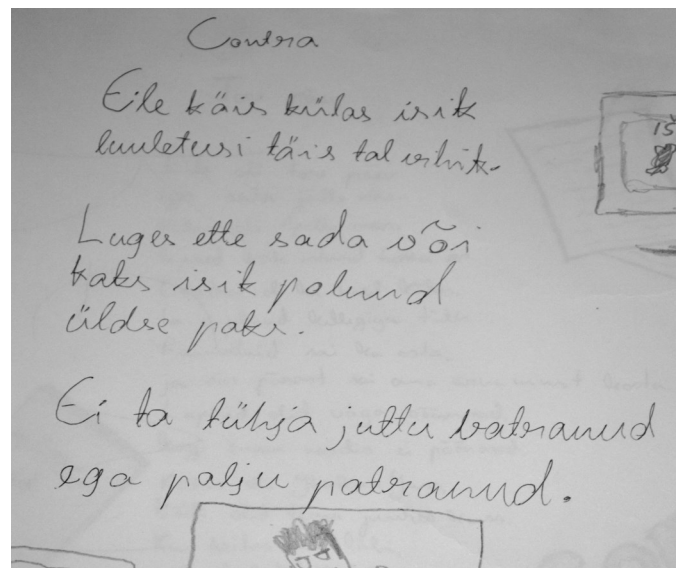 Contra
Eile käis külas isik
luuletusi täis tal vihik.
Luges ette sada või
kaks isik polnud
üldse paks.
Ei ta tühja juttu vatranud
ega palju patranud.
IŠ